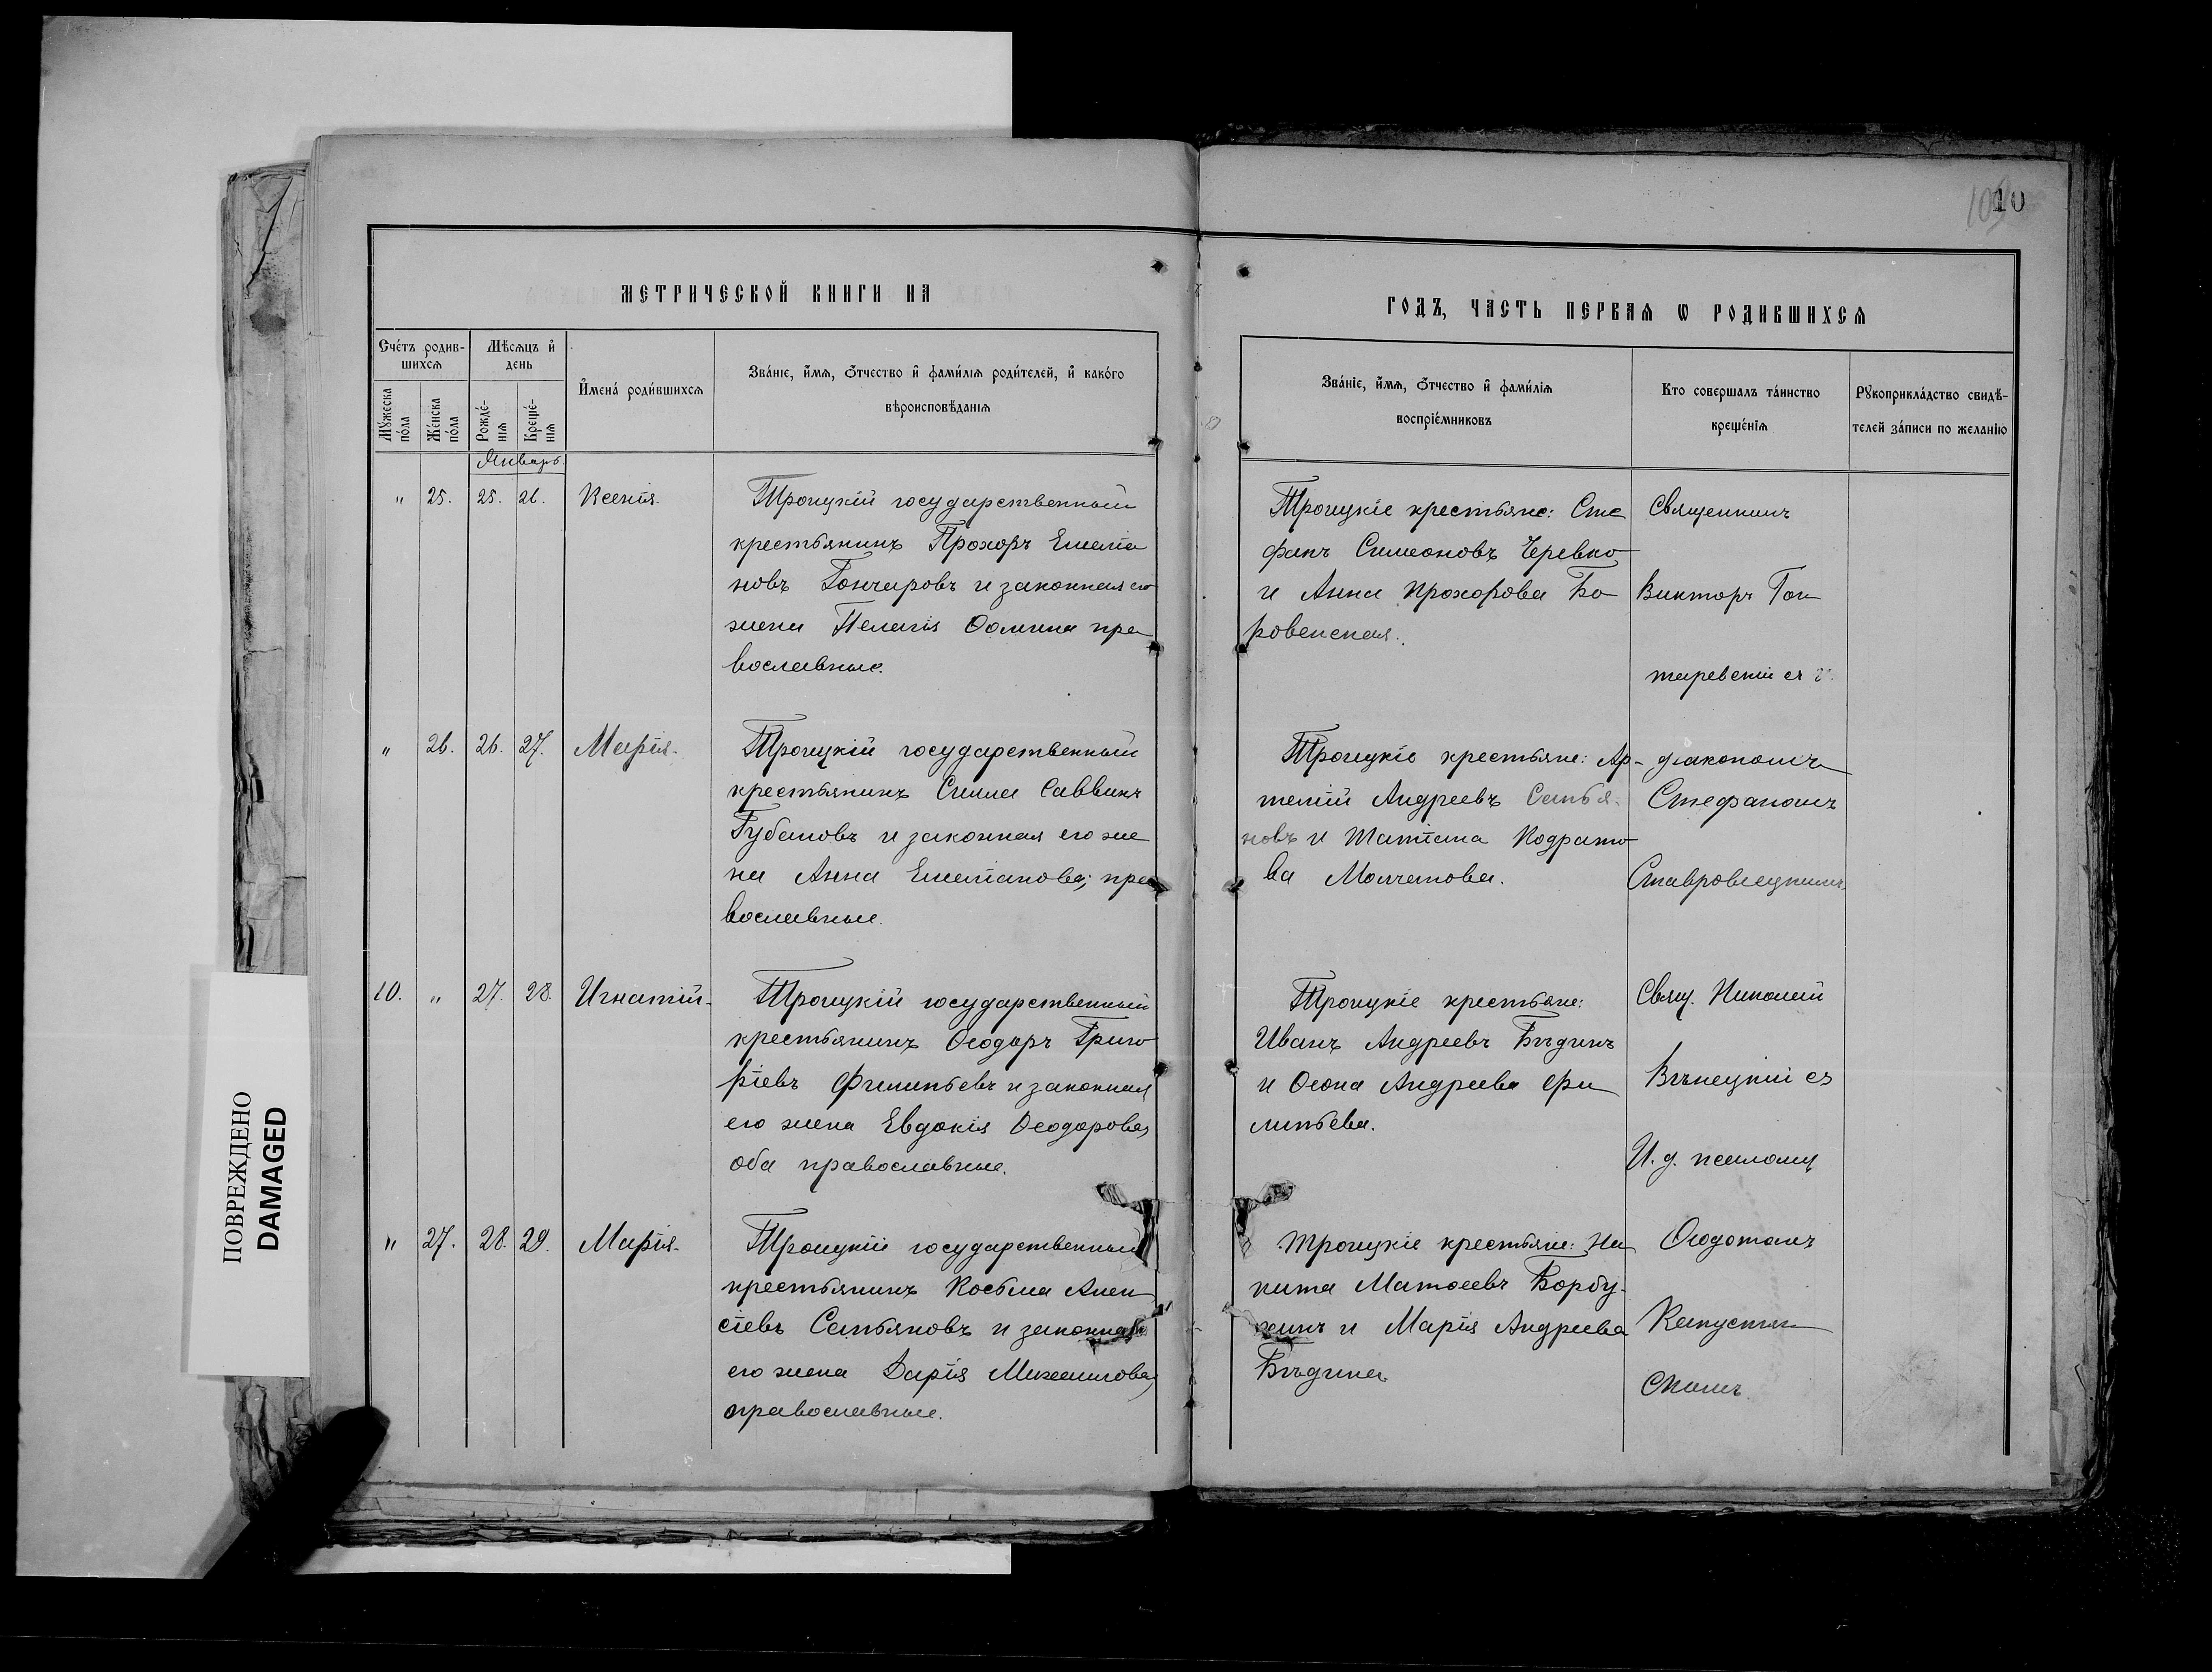 10
МЕТРИЧЕСКОЙ КНИГИ НА
ГОДЪ, ЧАСТЬ ПЕРВАѦ Ѡ РОДИВШИХСѦ
Счéтъ родив-
шихсѧ
Мѣсѧцъ и҆
день
Мꙋжеска
пóла
Жéнска
пóла
Рождé-
нїѧ
Крещé-
нїѧ
И҆менà роди́вшихсѧ
Звáнїе, и҆́мѧ, ѻ҆́тчество и҆ фами́лїѧ роди́телей, и҆ какóго
вѣроисповѣ́данїѧ
Звáнїе, и҆́мѧ, ѻ҆́тчество и҆ фами́лїѧ
воспрїéмниковъ
Кто совершалъ тáинство
крещéнїѧ
Рꙋкоприклáдство свидѣ́-
телей зáписи по желáнїю
Январь.
" 25. 25. 26. Ксенія.
Троицкій государственный
крестьянинъ Прохоръ Емелїа
новъ Гончаровъ и законная его
жена Пелагія Ѳомина пра
вославные.
Троицкіе крестьяне: Сте
фанъ Симеоновъ Черевко
и Анна Прохорова Бо
ровенская.
Священникъ
Викторъ Гон
таревскій съ
" 26. 26. 27. Марія.
Троицкій государственный
крестьянинъ Силла Саввинъ
Губановъ и законная его же
на Анна Емеліанова; пра
вославные.
Троицкіе крестьяне: Ар-
темій Андреевъ Сетья
новъ и Татіана Кодрато
ва Молчанова.
діакономъ
Стефаномъ
Ставровлецкимъ
10. " 27. 28. Игнатій.
Троицкій государственный
крестьянинъ Ѳеодоръ Григо
ріевъ Филипьевъ и законная
его жена Евдокія Ѳеодорова,
оба православные.
Троицкіе крестьяне:
Иванъ Андреевъ Бѣдинъ
и Ѳеона Андреева Фи
липьева.
Свящ. Николай
Вѣнецкій съ
И. д. псаломщ
" 27. 28. 29. Марія.
Троицкій государственный
крестьянинъ Косьма Алек
сіевъ Сетьяновъ и законная
его жена Дарія Михаилова,
православные.
Троицкіе крестьяне: Ни
кита Матѳеевъ Борбу
хинъ и Марія Андреева
Бѣдина
Ѳеодотомъ
Капустян
скимъ.
ПОВРЕЖДЕНО
DAMAGED